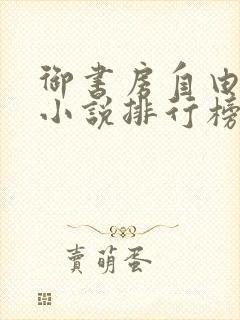 御書房自由
小說排行榜
賣萌蛋